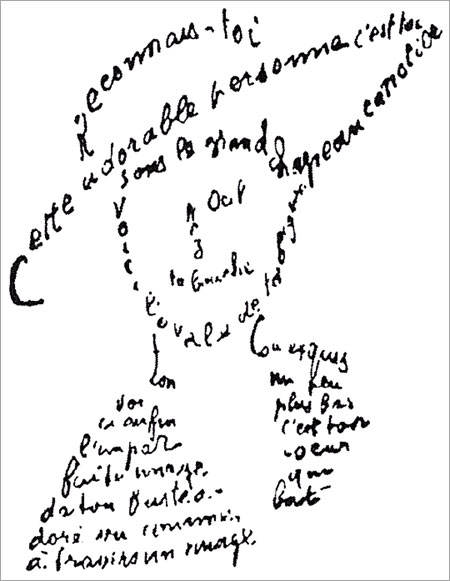 Reconnais-toi
Cette adorable personne c'est toi
sous le grand chapeau canotier
Oeil
Nez
la bouche
Voici l'ovale de ta figure
ton
Cou exquis
Voi
ci enfin
l'impar
faite image
de ton buste a-
doré vu comme
à travers un nuage.
un peu
plus bas
c'est ton
coeur
qui
bat